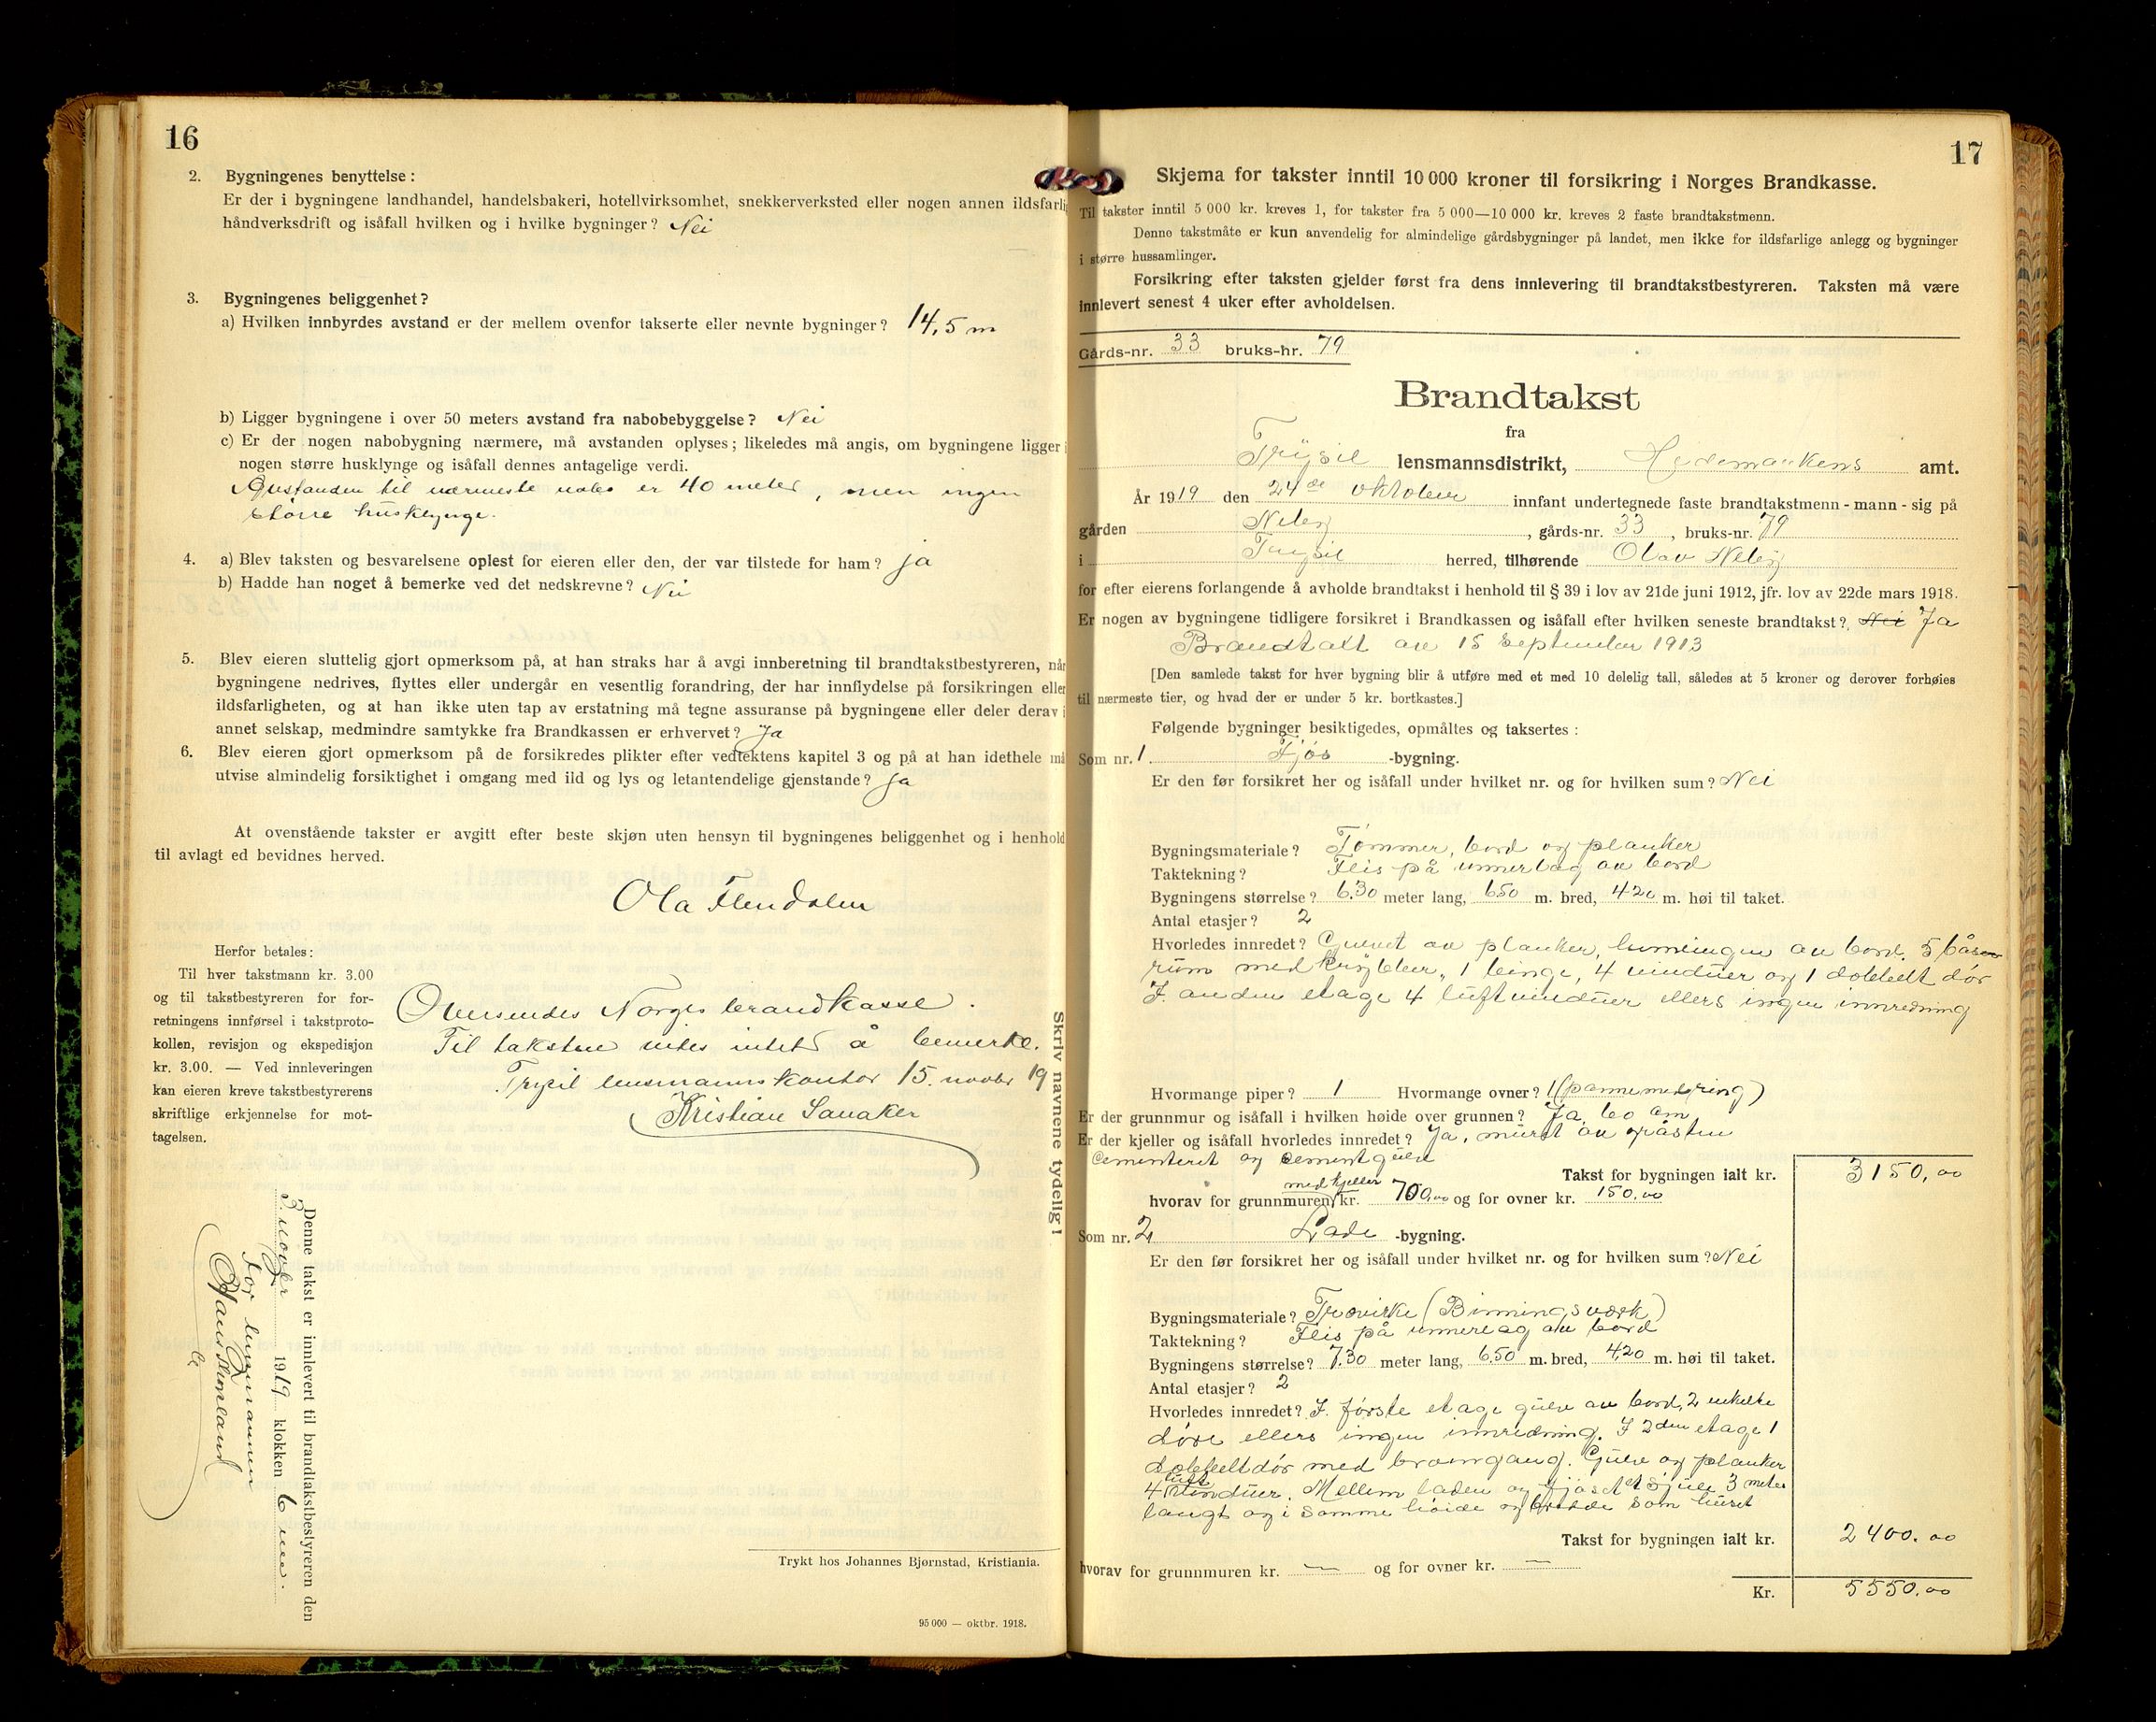 16
2. Bygningenes benyttelse:
Er der i bygningene landhandel, handelsbakeri, hotellvirksomhet, snekkerverksted eller nogen annen ildsfarli
håndverksdrift og isåfall hvilken og i hvilke bygninger? Nei
3. Bygningenes beliggenhet?
a) Hvilken innbyrdes avstand er der mellem ovenfor takserte eller nevnte bygninger? 14,5 m
b) Ligger bygningene i over 50 meters avstand fra nabobebyggelse? Nei
c) Er der nogen nabobygning nærmere, må avstanden oplyses; likeledes må angis, om bygningene ligger i
nogen større husklynge og isåfall dennes antagelige verdi.
Avstanden til nærmeste nabo er 40 meter, men ingen
større husklynge.
4. a) Blev taksten og besvarelsene oplest for eieren eller den, der var tilstede for ham? ja
b) Hadde han noget å bemerke ved det nedskrevne? Nei
5. Blev eieren sluttelig gjort opmerksom på, at han straks har å avgi innberetning til brandtakstbestyreren, når
bygningene nedrives, flyttes eller undergår en vesentlig forandring, der har innflydelse på forsikringen eller
ildsfarligheten, og at han ikke uten tap av erstatning må tegne assuranse på bygningene eller deler derav i
annet selskap, medmindre samtykke fra Brandkassen er erhvervet? Ja
6. Blev eieren gjort opmerksom på de forsikredes plikter efter vedtektens kapitel 3 og på at han idethele må
utvise almindelig forsiktighet i omgang med ild og lys og letantendelige gjenstande? Ja
At ovenstående takster er avgitt efter beste skjøn uten hensyn til bygningenes beliggenhet og i henhold
til avlagt ed bevidnes herved.
Ola Flendalen
Herfor betales:
Til hver takstmann kr. 3.00
og til takstbestyreren for for-
retningens innførsel i takstproto-
kollen, revisjon og ekspedisjon
kr. 3.00. — Ved innleveringen
kan eieren kreve takstbestyrerens
skriftlige erkjennelse for mot-
tagelsen.
Oversendes Norges brandkasse.
Til taksten vites intet å bemerke.
Trysil lensmannskontor 15. novbr 19
Kristian Sanaker
Skriv navnene tydelig!
Denne takst er innlevert til brandtakstbestyreren den
3 novber 1919 klokken 6 em.
For lensmannen
Trykt hos Johannes Bjørnstad, Kristiania.
95 000 — oktbr. 1918.
17
Skjema for takster inntil 10 000 kroner til forsikring i Norges Brandkasse.
Til takster inntil 5 000 kr. kreves 1, for takster fra 5 000—10 000 kr. kreves 2 faste brandtakstmenn.
Denne takstmåte er kun anvendelig for almindelige gårdsbygninger på landet, men ikke for ildsfarlige anlegg og bygninger
i større hussamlinger.
Forsikring efter taksten gjelder først fra dens innlevering til brandtakstbestyreren. Taksten må være
innlevert senest 4 uker efter avholdelsen.
Gårds-nr. 33 bruks-nr. 79
Brandtakst
fra
Trysil lensmannsdistrikt, Hedemarkens amt.
År 1919 den 24de oktober innfant undertegnede faste brandtakstmenn - mann - sig på
gården Neby, gårds-nr. 33, bruks-nr. 79
i Trysil herred, tilhørende Olav Neby
for efter eierens forlangende å avholde brandtakst i henhold til § 39 i lov av 21de juni 1912, jfr. lov av 22de mars 1918.
Er nogen av bygningene tidligere forsikret i Brandkassen og isåfall efter hvilken seneste brandtakst? Nei Ja
Brandtakt av 15 September 1913
[Den samlede takst for hver bygning blir å utføre med et med 10 delelig tall, således at 5 kroner og derover forhøies
til nærmeste tier, og hvad der er under 5 kr. bortkastes.]
Følgende bygninger besiktigedes, opmåltes og taksertes:
Som nr. 1 Fjøs -bygning.
Er den før forsikret her og isåfall under hvilket nr. og for hvilken sum? Nei
Bygningsmateriale? Tømmer, bord og planker
Taktekning? Flis på unnerlag av bord
Bygningens størrelse? 6.30 meter lang, 650 m. bred, 420 m. høi til taket.
Antal etasjer? 2
Hvorledes innredet? Gulvet av planker, himlingen av bord. 5 båse
rum med krybber, 1 binge, 4 vinduer og 1 dobbelt dør
I anden etage 4 luftvinduer ellers ingen innredning
Hvormange piper? 1 Hvormange ovner? 1 (panne med ring)
Er der grunnmur og isåfall i hvilken høide over grunnen? Ja, 60 cm
Er der kjeller og isåfall hvorledes innredet? Ja, muret av gråsten
cementeret og cementgulv
Takst for bygningen ialt kr. 3150,00
med kjeller
hvorav for grunnmuren kr. 700,00 og for ovner kr. 150.00
Som nr. 2 Lade -bygning.
Er den før forsikret her og isåfall under hvilket nr. og for hvilken sum? Nei
Bygningsmateriale? Trævirke (Binningsværk)
Taktekning? Flis på unnerlag av bord
Bygningens størrelse? 7.30 meter lang, 6.50 m. bred, 4.20 m. høi til taket.
Antal etasjer? 2
Hvorledes innredet? I første etage gulv av bord, 2 enkelte
døre ellers ingen innredning. I 2den etage 1
dobbeltdør med bromgang. Gulv og planker
4 luft vinduer. Mellem laden og fjøset et sjule 3 meter
langt og i samme høide og bredde som huset
Takst for bygningen ialt kr. 2400.00
hvorav for grunnmuren kr. — og for ovner kr. —
Kr. 5550.00